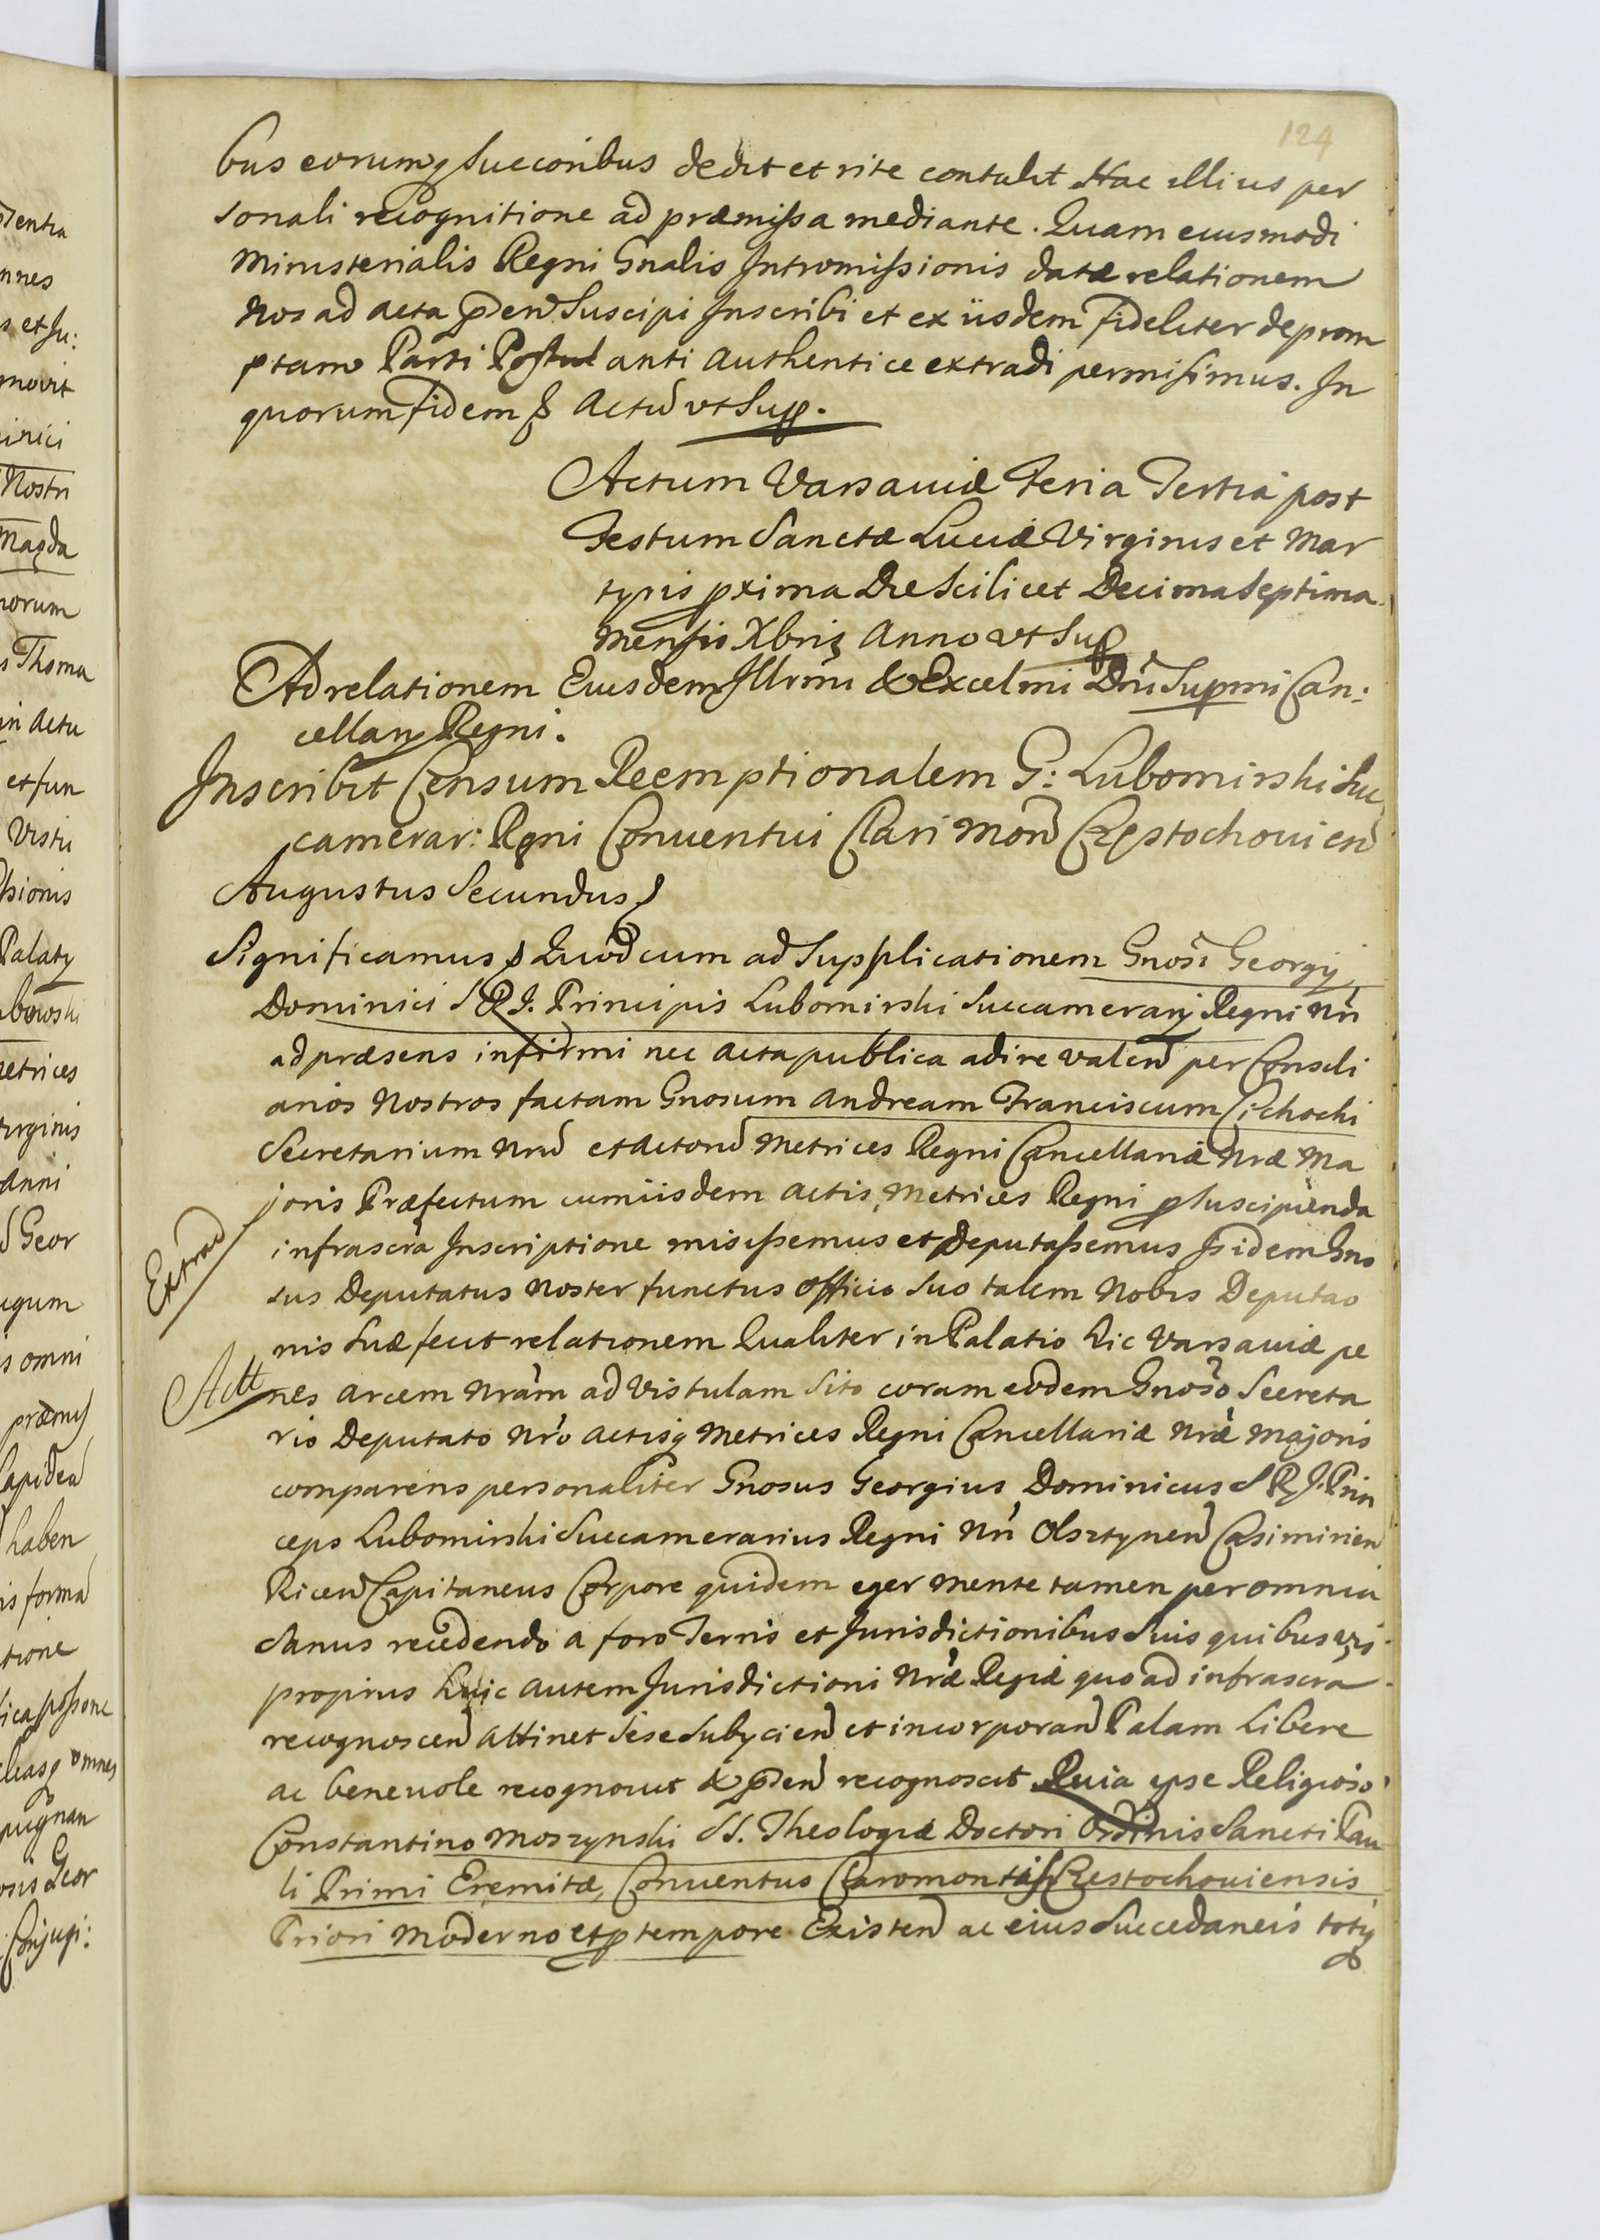 124
bus eorumq Succoribus dedit et rite contulit Hac illius per
sonali recognitione ad præmissa mediante. Quam eiusmodi
Ministerialis Regni Gnalis Intromissionis datæ relationem
Nos ad acta pñden Suscipi Inscribi et ex iisdem fideliter deprom
ptam Parti Postulanti authentice extradi permisimus. In
quorum fidem Actũ ut Sup.
Actum Varsaviæ Feria Tertia post
Festum Sanctæ Luciæ Virginis et Mar
tyris pxima Die Scilicet Decima Septima
Mensis Xbris Anno ut Sup
Ad relationem Eiusdem Illrmi & Excelmi Dni Supmi Can:
cellarij Regni.
Inscribit Censum Reemptionalem G: Lubomirski Suc
camerar: Rgni Conventui Clari Mon Częstochovien
Augustus Secundus
Significamus Quod cum ad Supplicationem Gnosi Georgij
Dominici S R J. Principis Lubomirski Succamerarij Regni Nri
ad præsens infirmi nec acta publica adire valen per Consili
arios Nostros factam Gnosum Andream Franciscum Cichocki
Secretarium Nrũ et Actorũ Metrices Regni Cancellariæ Nræ Ma
joris Præfectum cum iisdem actis Metrices Regni p Suscipienda
infrascra Inscriptione misissemus et Deputassemus Is idem Gno
sus Deputatus Noster functus officio suo talem Nobis Deputao
nis suæ fecit relationem Qualiter in Palatio hic Varsaviæ pe
nes arcem Nram ad Vistulam sito coram eodem Gnoso Secreta
rio Deputato Nro actisq Metrices Regni Cancellariæ Nræ Majoris
comparens personaliter Gnosus Georgius Dominicus S R J. Prin
ceps Lubomirski Succamerarius Regni Nri Olsztynen Casimirien
Ricen Capitaneus Corpore quidem eger mente tamen per omnia
Sanus recedendo a foro Terris et Jurisdictionibus Suis quibusvis
propriis huic autem Jurisdictioni Nræ Regiæ quo ad infrascra
recognoscen attinet Sese Subycien et incorporan Palam Libere
ac benevole recognovit & pñden recognoscit Quia ipse Religioso
Constantino Moszynski SS. Theologiæ Doctori Ordinis Sancti Pau
li Primi Eremitæ, Conventus Claromontis Czestochoviensis
Priori Moderno et p tempore Existen ac eius Succedaneis totiq
Extrad
Act